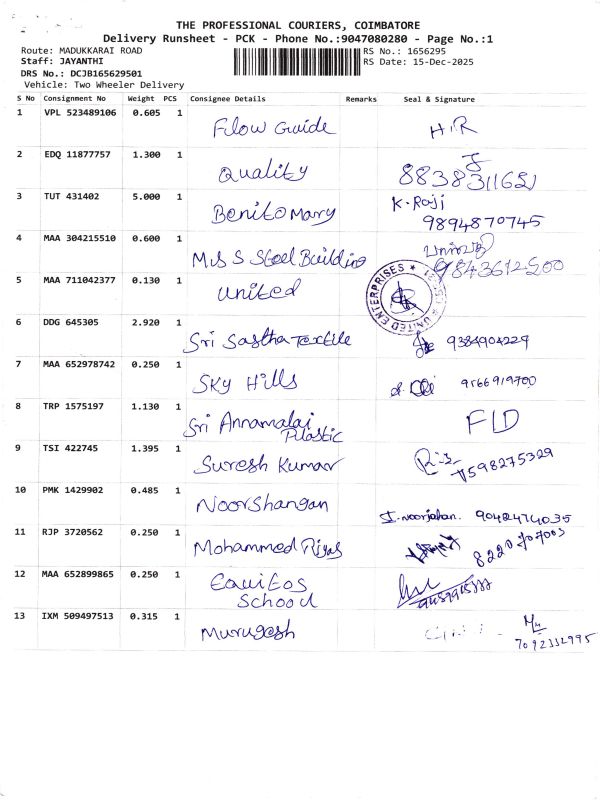 THE PROFESSIONAL COURIERS, COIMBATORE
Delivery Runsheet - PCK - Phone No.:9047080280 - Page No.:1
Route: MADUKKARAI ROAD RS No.: 1656295
Staff: JAYANTHI RS Date: 15-Dec-2025
DRS No.: DCJB165629501
Vehicle: Two Wheeler Delivery
S No Consignment No Weight PCS Consignee Details Remarks Seal & Signature
1 VPL 523489106 0.605 1 Flow Guide H.R
2 EDQ 11877757 1.300 1 Quality
3 TUT 431402 5.000 1 Benito Mary K. Raji
9894870745
4 MAA 304215510 0.600 1 M/s S Steel Building
9843612500
5 MAA 711042377 0.130 1 United
UNITED ENTERPRISES
6 DDG 645305 2.920 1 Sri Sastha Textile 9384904229
7 MAA 652978742 0.250 1 Sky Hills 9566919700
8 TRP 1575197 1.130 1 Sri Annamalai
Plastic
FLD
9 TSI 422745 1.395 1 Suresh Kumar
7598275329
10 PMK 1429902 0.485 1 Noorshangan I. noorjahan. 9042474035
11 RJP 3720562 0.250 1 Mohammed Riyas 8220707003
12 MAA 652899865 0.250 1 Equitos
School
13 IXM 509497513 0.315 1 Murugesh
7092332995